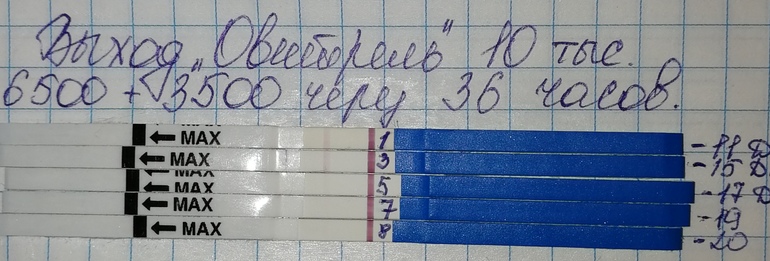 Выход "Овитрель" 10 тыс.
6500 + 3500 через 36 часов.
MAX
← MAX 1 - 11 D
← MAX 3 - 15 D
MAX
← MAX 5 - 17 D
← MAX 7 - 19
← MAX 8 - 20